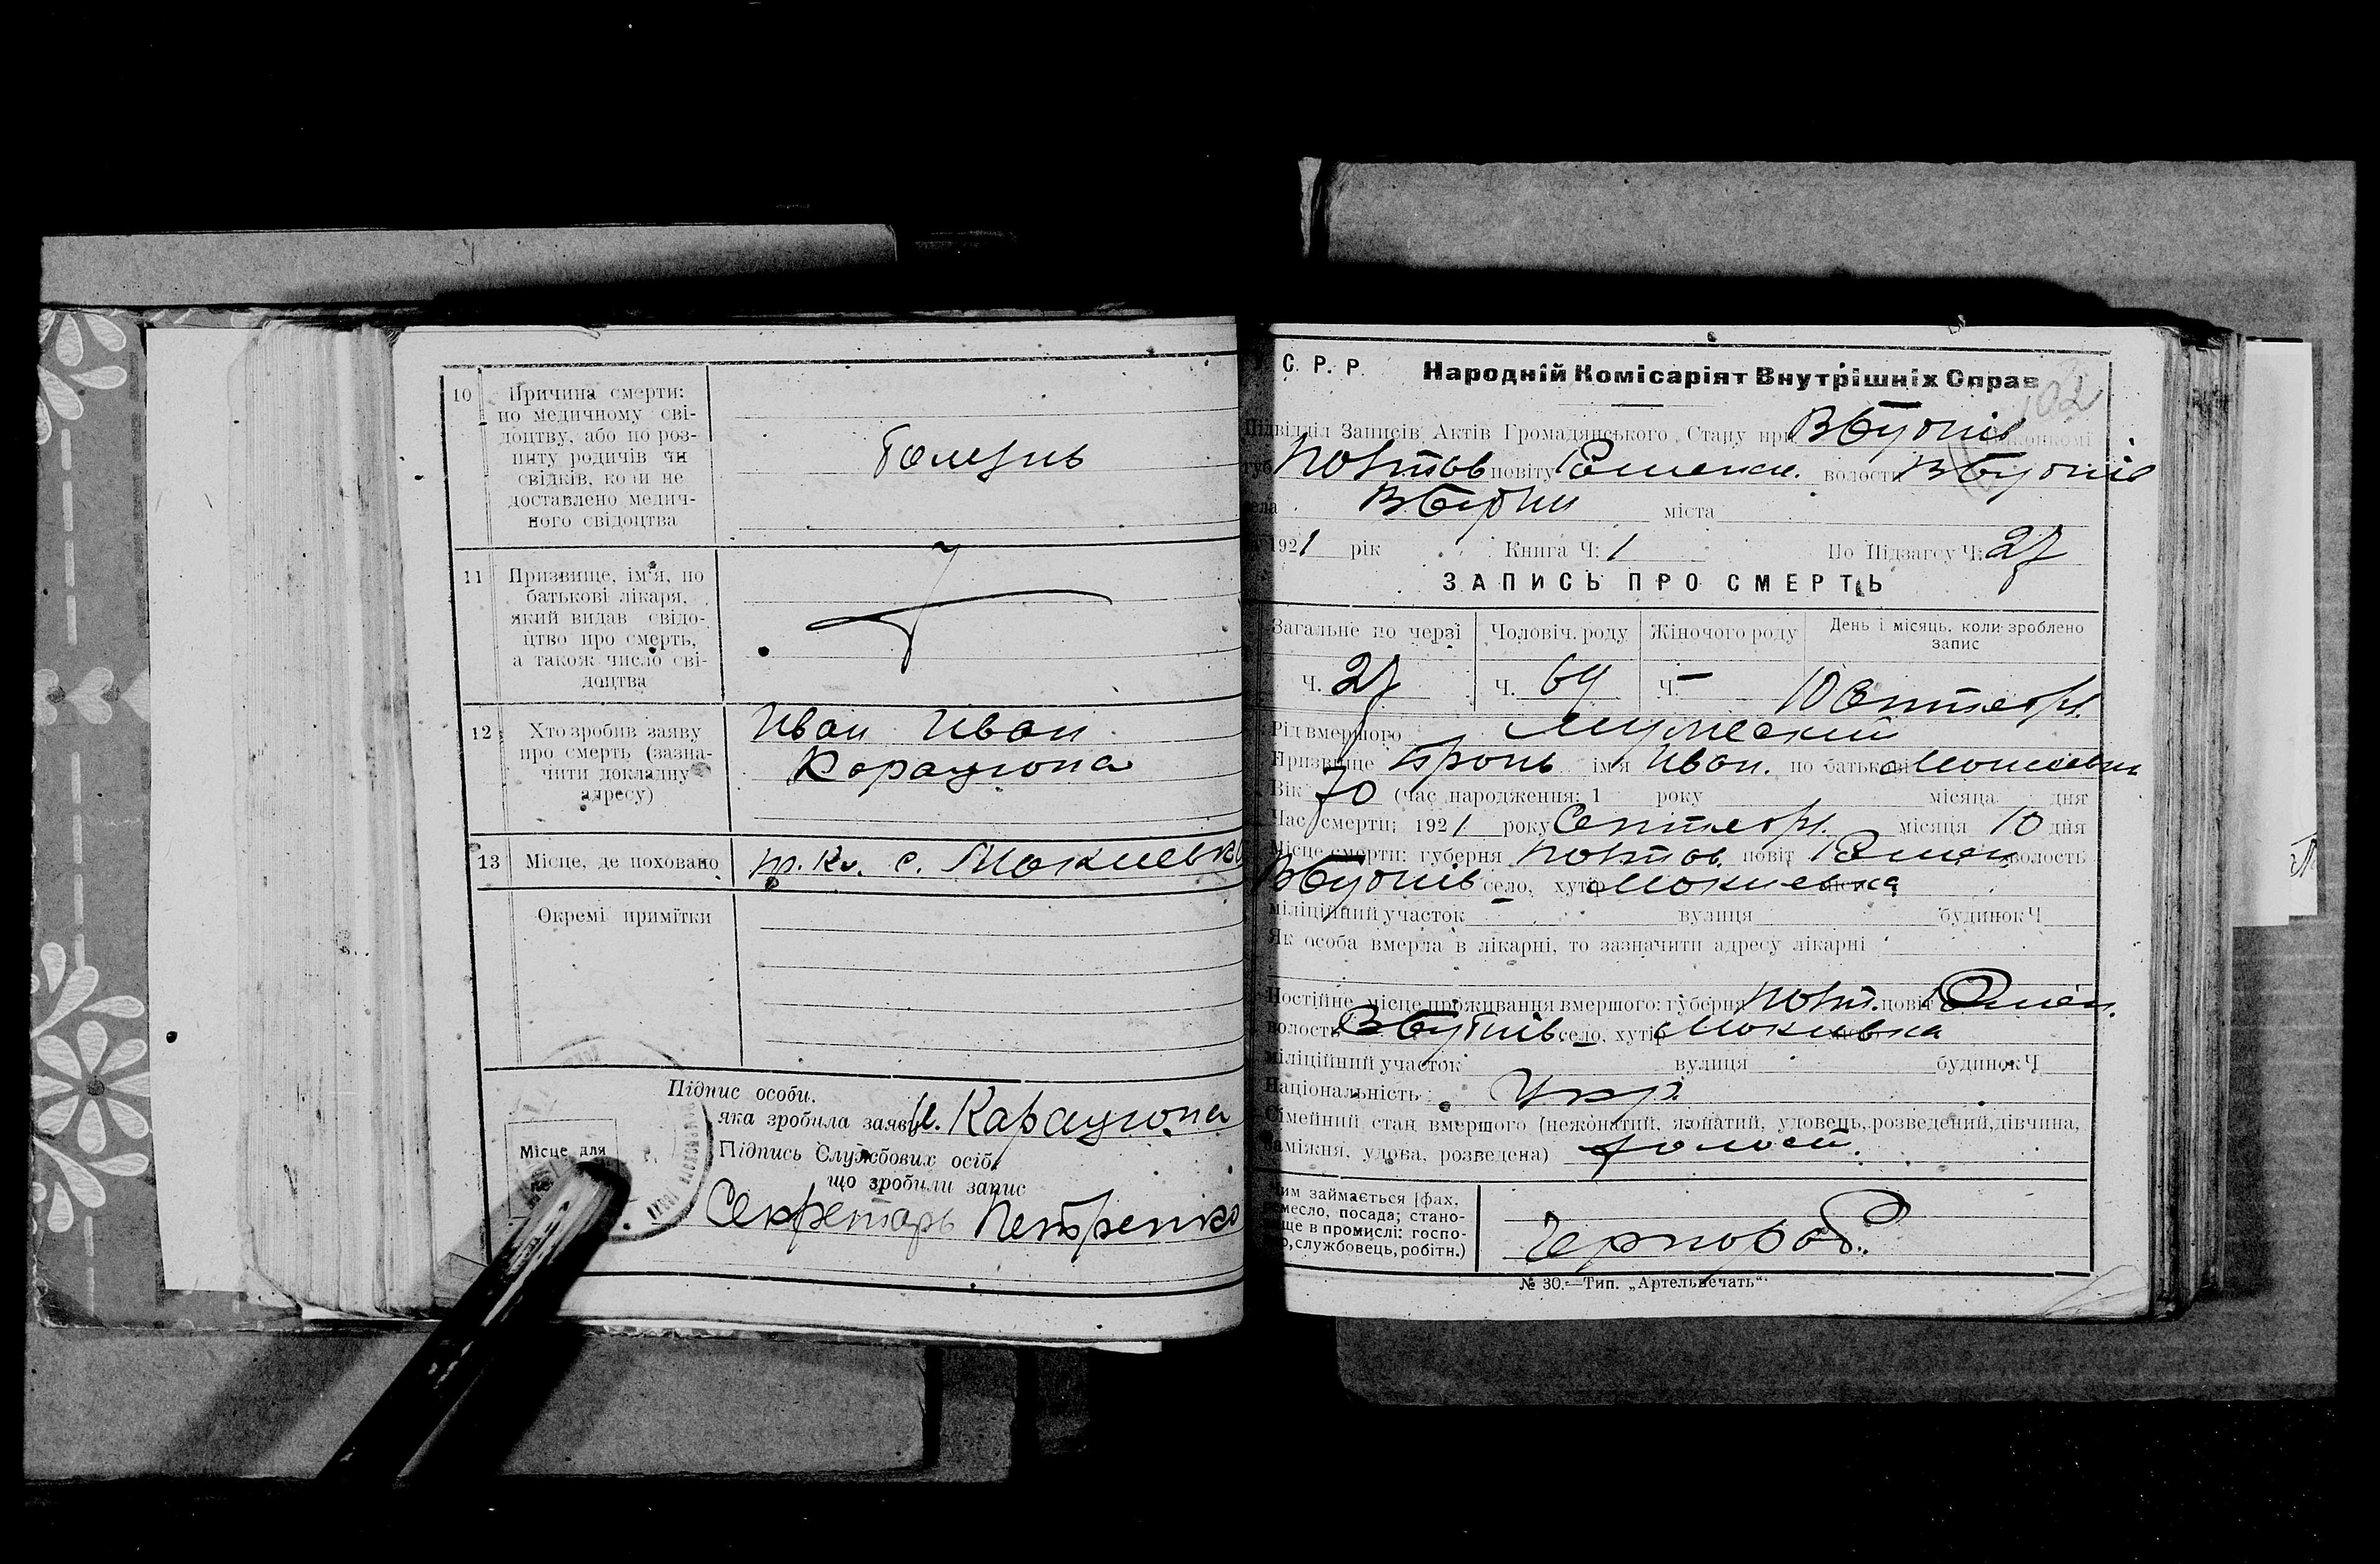 10
Причина смерти:
по медичному сві-
доцтву, або по роз-
питу родичів чи
свідків, коли не
доставлено медич-
ного свідоцтва
11
Призвище, ім'я, по
батькові лікаря,
який видав свідо-
цтво про смерть,
а також число сві-
доцтва
12
Хто зробив заяву
про смерть (зазна-
чити докладну
адресу)
Иван Иван
13
Місце, де поховано
с. Мокиевк
Окремі примітки
Підпис особи,
яка зробила заяву
Підпись Службових осіб,
що зробили запис
Секретарь Петренко
Місце для
С. Р. Р.
Народній Комісаріят Внутрішніх Справ
102
Підвідділ Записів Актів Громадянського Стану при
губ Полтав повіту Роменск. волости
села міста
1921 рік Книга Ч: 1 По Підзагсу Ч: 27
ЗАПИСЬ ПРО СМЕРТЬ
Загальне по черзі Чоловіч. роду Жіночого роду День і місяць, коли зроблено
запис
Ч. 27 Ч. 69 Ч. – 10 Сентября
Рід вмершого Мужеский
Призвище имя Иван. по батькові
Вік 70 (час народження: 1 року місяця дня
Час смерти: 1921 року Сентября місяця 10 дня
Місце смерти: губерня Полтав. повіт Ромен волость
село, хутір Мокиевка
міліційний участок вулиця будинок Ч
Як особа вмерла в лікарні, то зазначити адресу лікарні
Постійне місце проживання вмершого: губерня Полт. повіт Ромен.
волость село, хутір Мокиевка
міліційний участок вулиця будинок Ч
Національність Укр.
Сімейний стан вмершого (нежонатий, жонатий, удовець, розведений, дівчина,
заміжня, удова, розведена) холост.
Чим займається (фах.
ремесло, посада; стано-
вище в промислі: госпо-
р, службовець, робітн.)
Чернораб.
№ 30.—Тип. „Артельпечать“